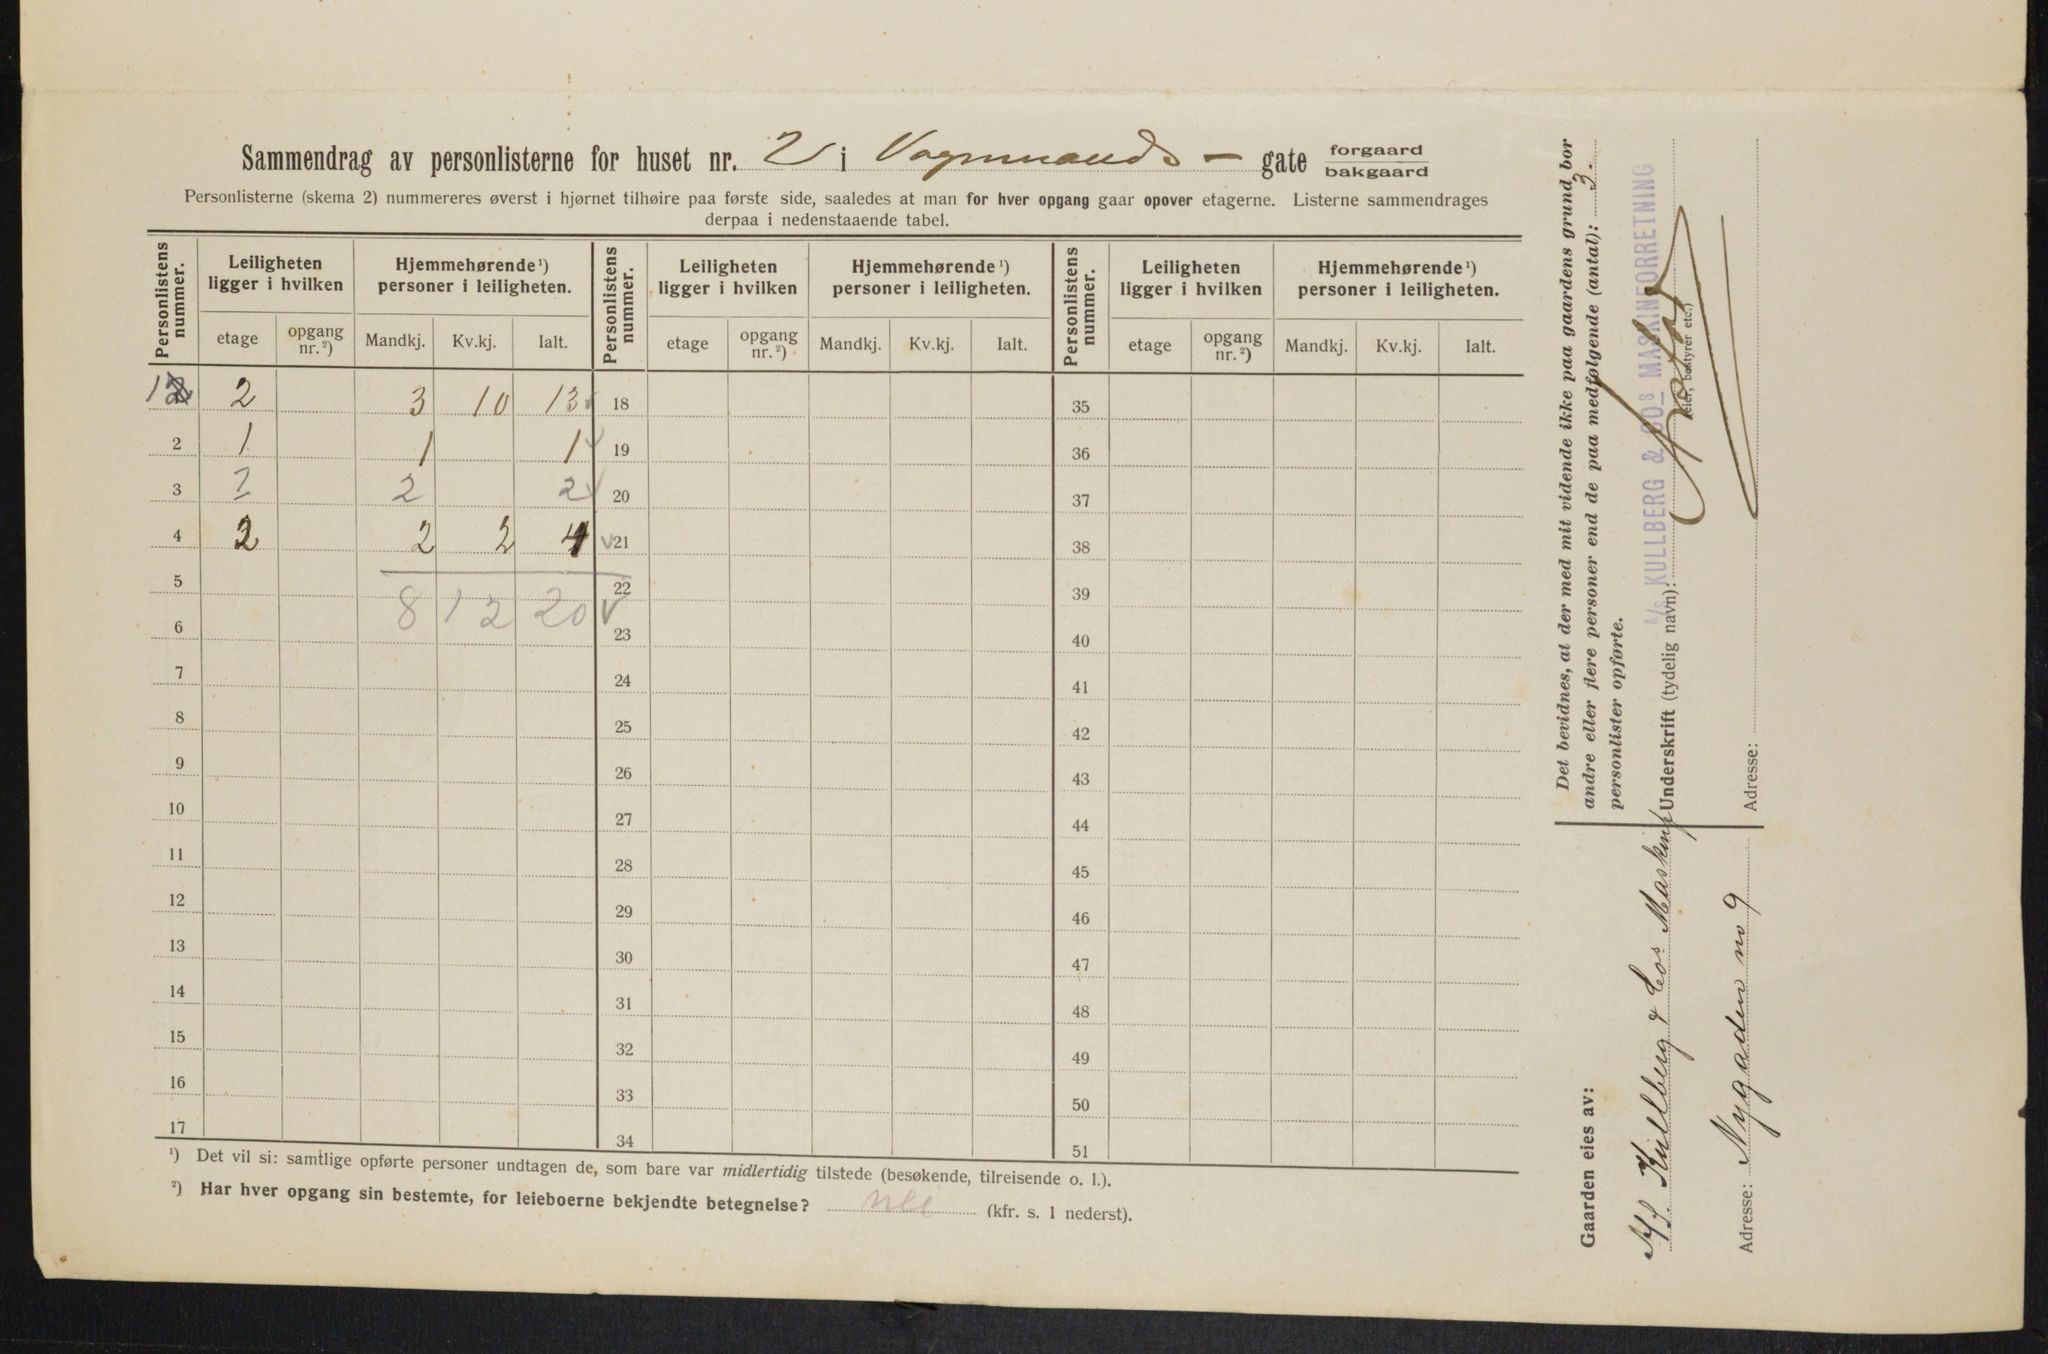 Sammendrag av personlisterne for huset nr. 2 i Vognmands- gate forgaard bakgaard
Personlisterne (skema 2) nummereres øverst i hjørnet tilhøire paa første side, saaledes at man for hver opgang gaar opover etagerne. Listerne sammendrages
derpaa i nedenstaaende tabel.
Personlistens nummer. Leiligheten ligger i hvilken Hjemmehørende¹) personer i leiligheten. Personlistens nummer. Leiligheten ligger i hvilken Hjemmehørende¹) personer i leiligheten. Personlistens nummer. Leiligheten ligger i hvilken Hjemmehørende¹) personer i leiligheten.
etage opgang nr.²) Mandkj. Kv.kj. Ialt. etage opgang nr.²) Mandkj. Kv.kj. Ialt. etage opgang nr.²) Mandkj. Kv.kj. Ialt.
1 2 3 10 13 18 35
2 1 1 1 19 36
3 2 2 2 20 37
4 2 2 2 4 21 38
5 22 39
8 12 20
6 23 40
7 24 41
8 25 42
9 26 43
10 27 44
11 28 45
12 29 46
13 30 47
14 31 48
15 32 49
16 33 50
17 34 51
¹) Det vil si: samtlige opførte personer undtagen de, som bare var midlertidig tilstede (besøkende, tilreisende o. l.).
²) Har hver opgang sin bestemte, for leieboerne bekjendte betegnelse? nei (kfr. s. 1 nederst).
Det bevidnes, at der med mit vidende ikke paa gaardens grund bor
andre eller flere personer end de paa medfølgende (antal): 3.
personlister opførte.
A/S KULLBERG & COs MASKINFORRETNING
Underskrift (tydelig navn):
(eier, bestyrer etc.)
Adresse:
Gaarden eies av:
A/S. Kullberg & Cos Maskinf
Adresse: Nygaden no 9